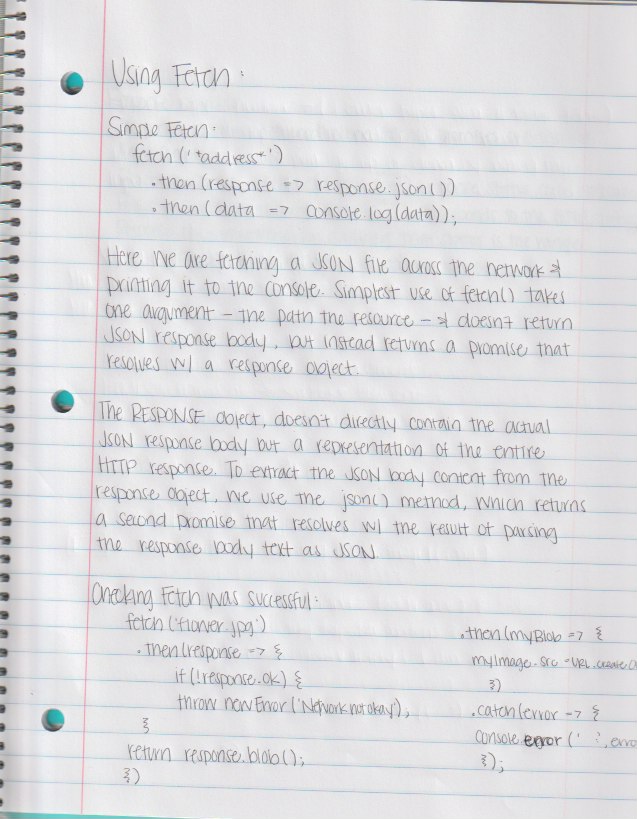 Using Fetch:
Simple Fetch:
fetch('*address*')
.then(response => response.json())
.then(data => console.log(data));
Here we are fetching a JSON file across the network &
printing it to the console. Simplest use of fetch() takes
one argument – the path the resource – & doesn't return
JSON response body, but instead returns a promise that
resolves w/ a response object.
The RESPONSE object, doesn't directly contain the actual
JSON response body but a representation of the entire
HTTP response. To extract the JSON body content from the
response object, we use the json() method, which returns
a second promise that resolves w/ the result of parsing
the response body text as JSON.
Checking Fetch was successful:
fetch('flower.jpg')
.then(response => {
if(!response.ok) {
throw newError('Network not okay');
}
return response.blob();
})
.then(myBlob => {
myImage.src = URL.create
})
.catch(error => {
console.error(' :', erro
});